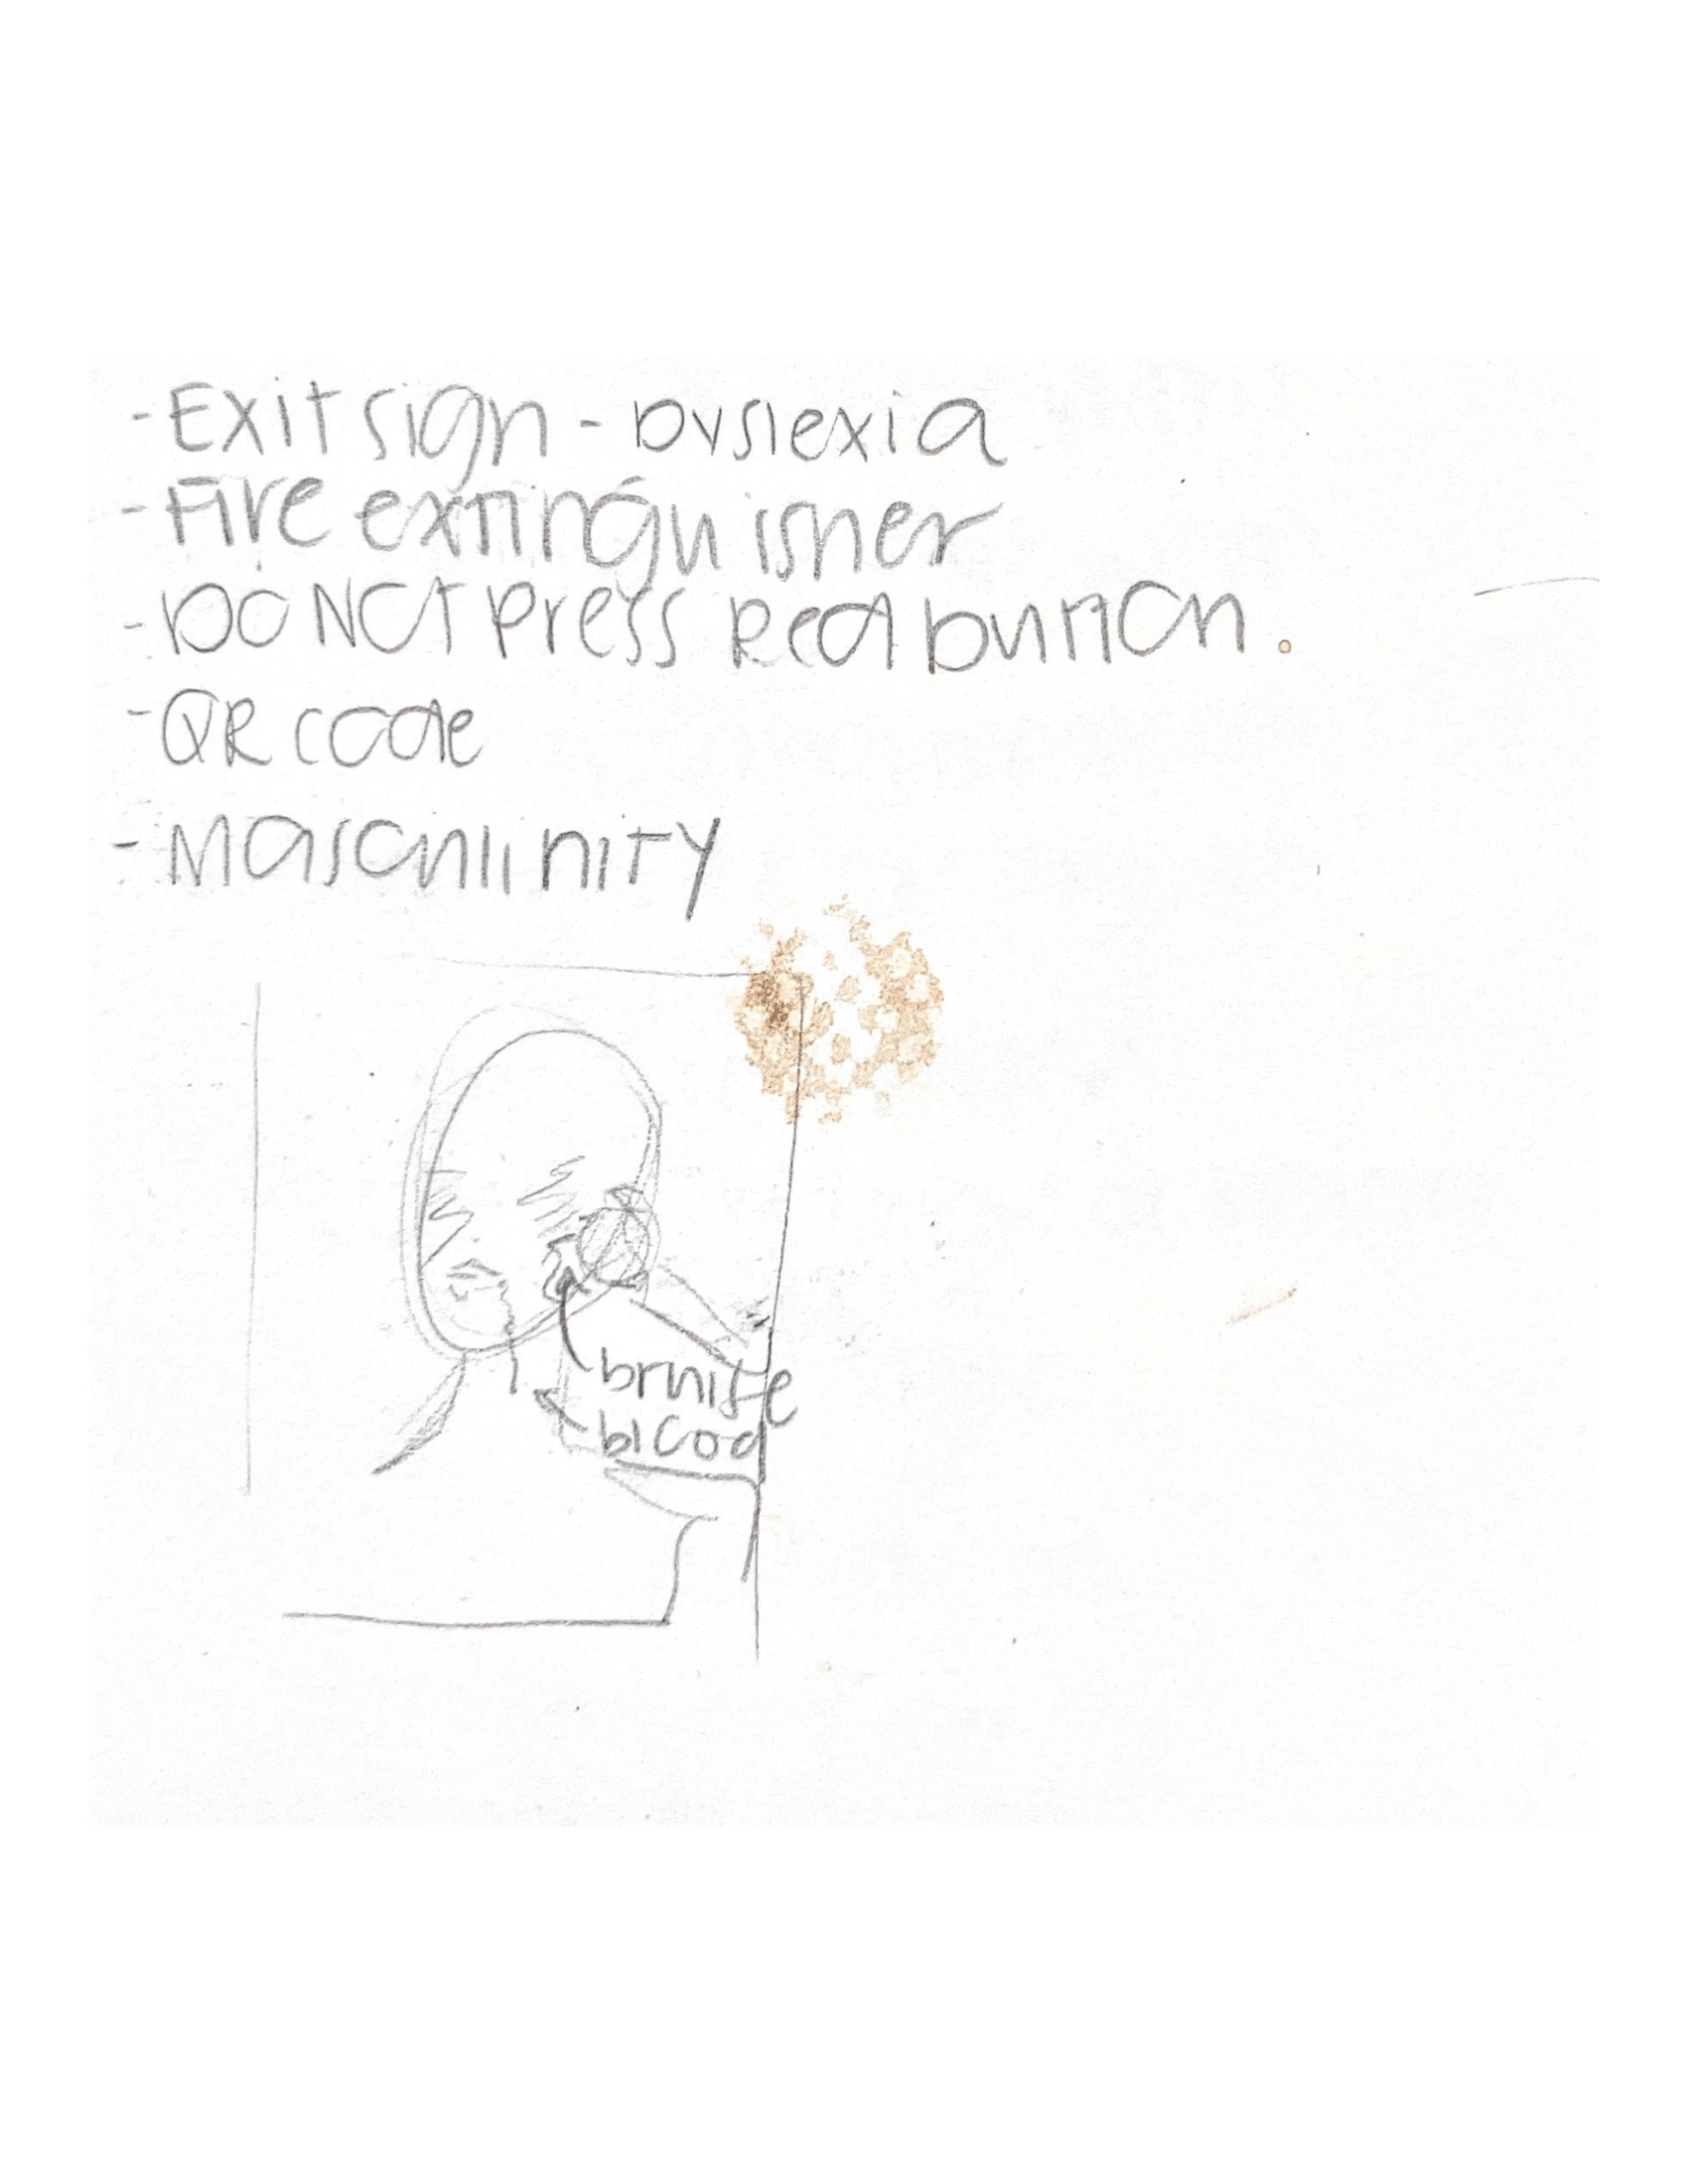 - Exit sign - Dyslexia
- Fire extinguisher
- DO NOT Press Red button.
- QR code
- Masculinity
bruise
blood